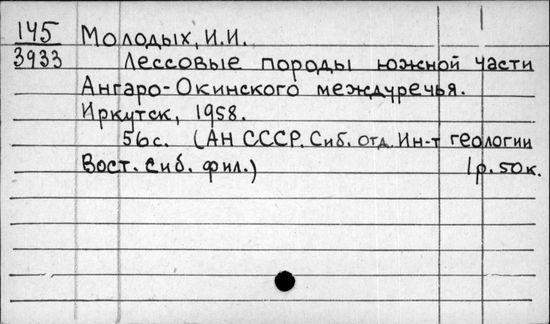 145 Молодых, И.И.
3933 Лессовые породы южной части
Ангаро-Окинского междуречья.
Иркутск, 1958.
56с. (АН СССР. Сиб. отд. Ин-т геологии
Вост. Сиб. фил.) 1р. 50к.